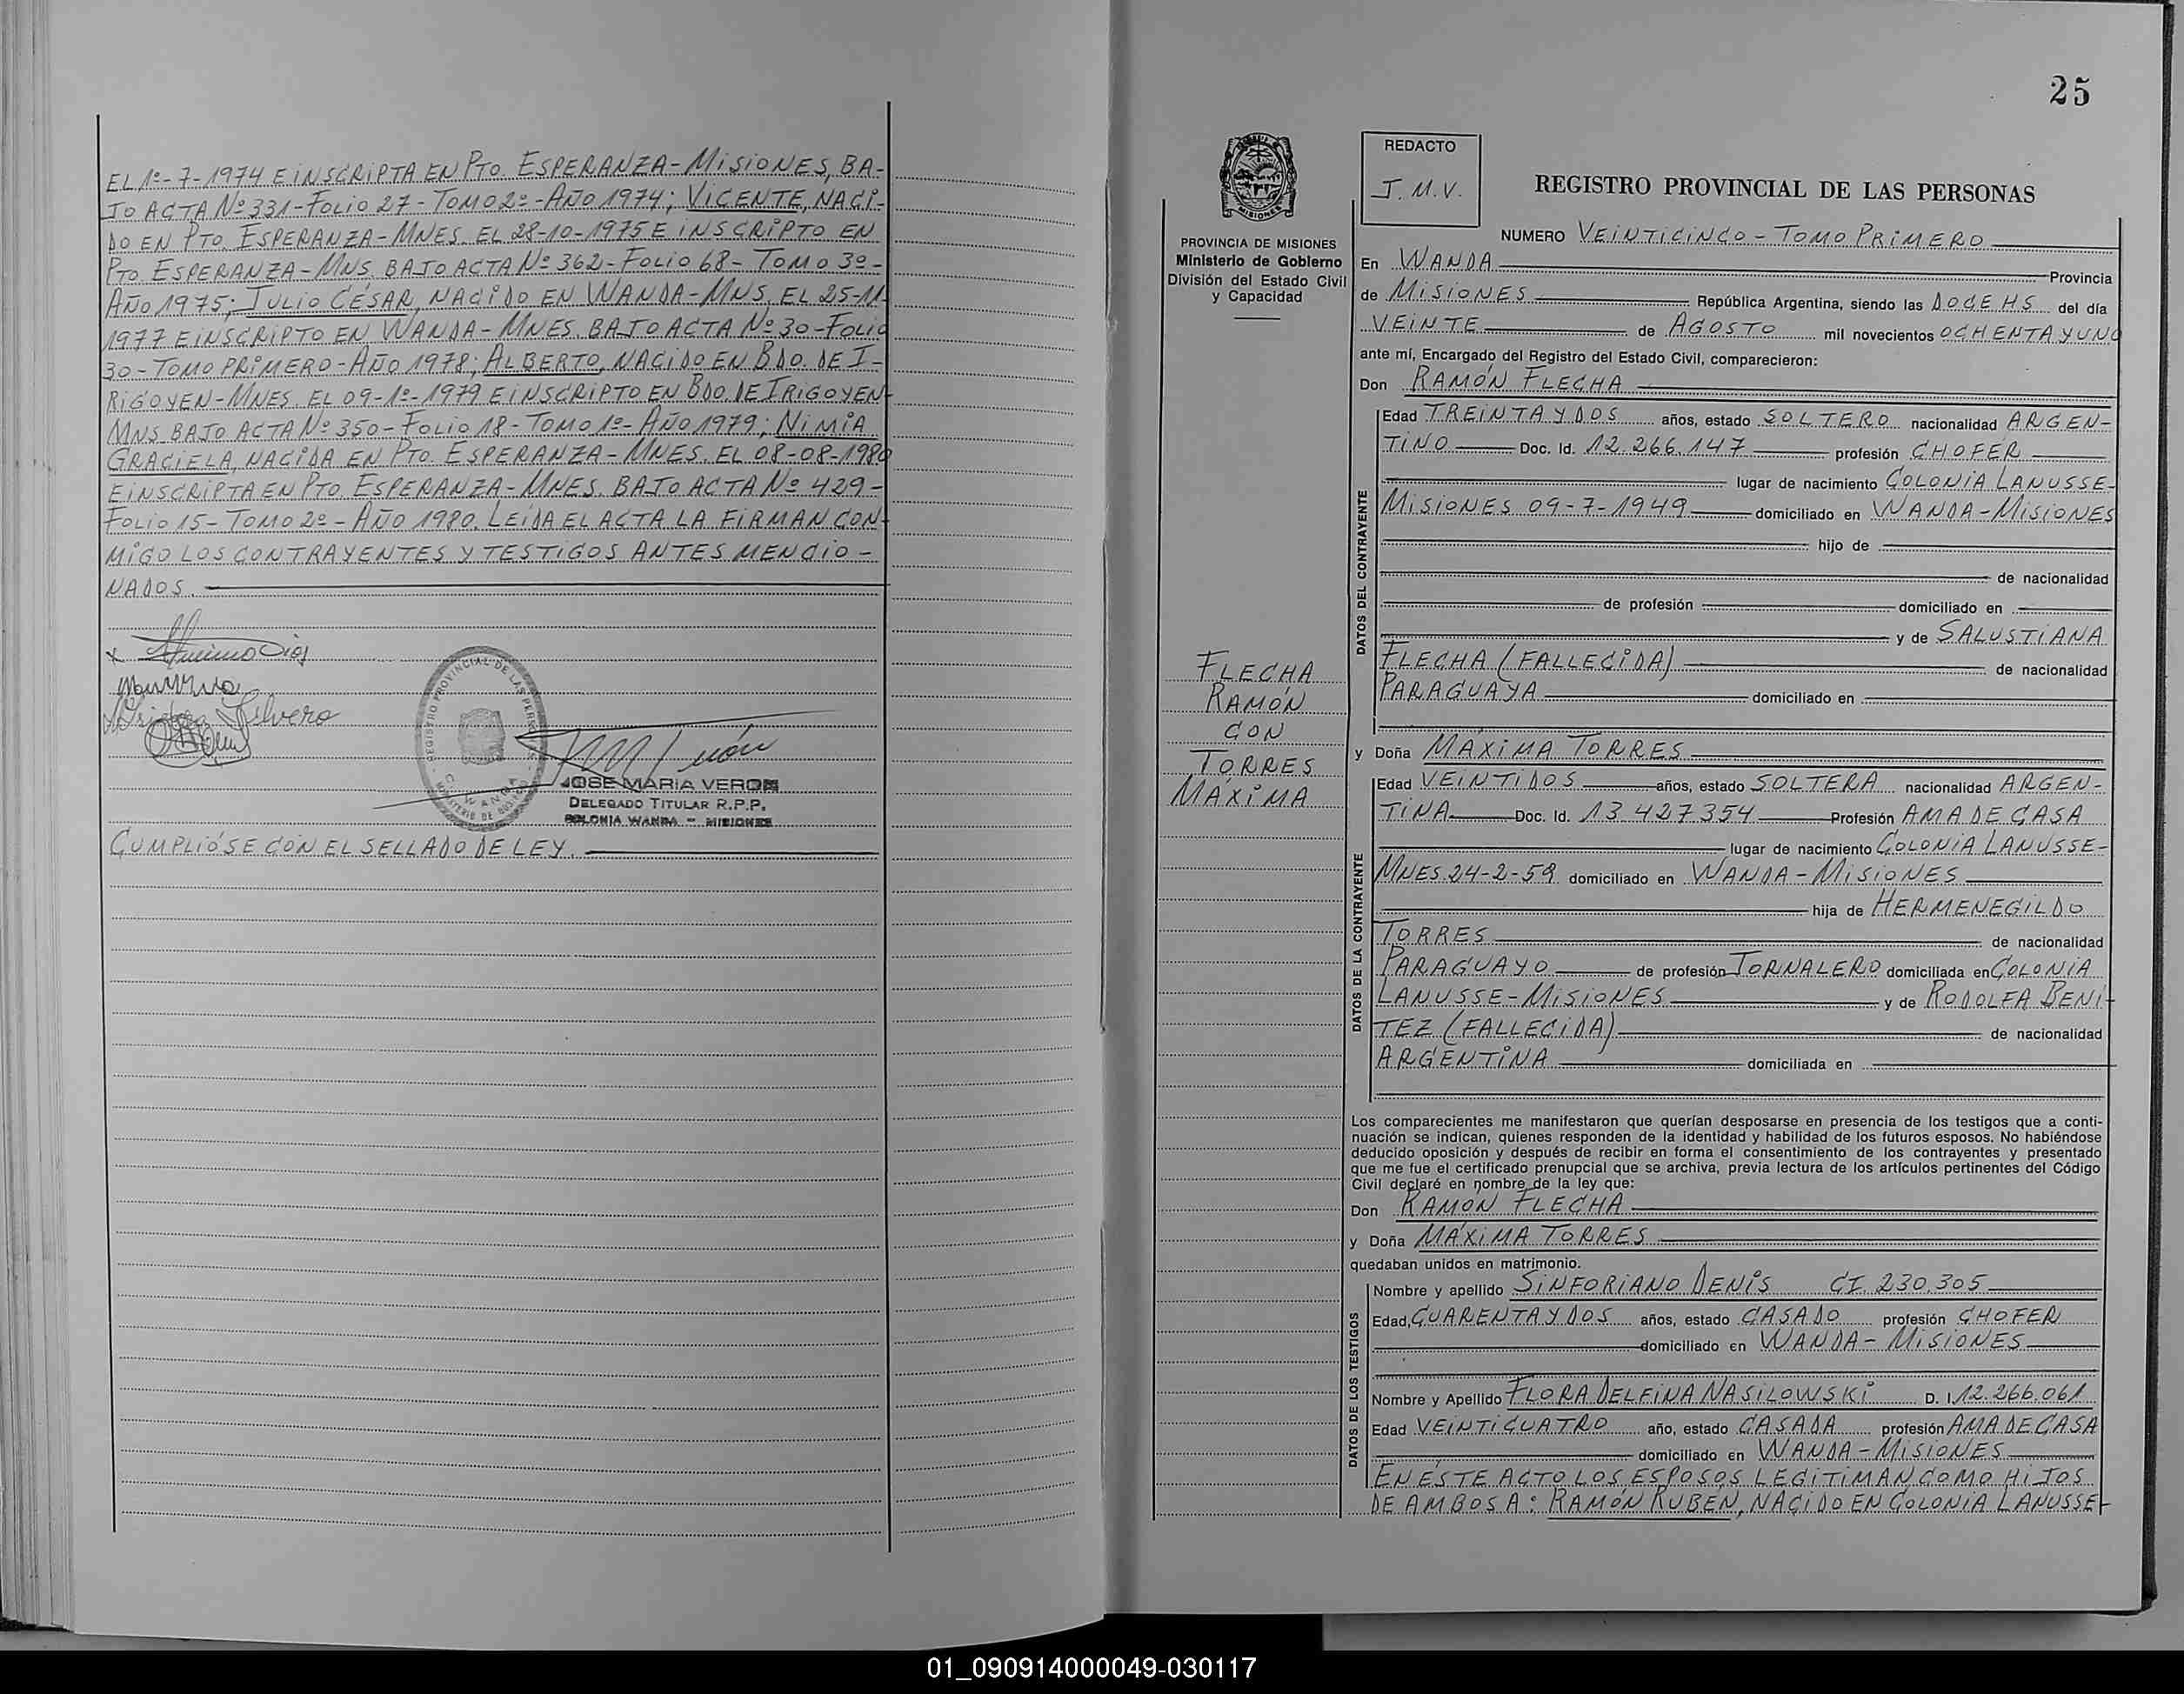 EL 1º-7-1974 E iNSCRiPTA EN PTO. ESPERANZA-MiSiONES, BA-
JO ACTA Nº 331-FOLiO 27-TOMO 2º-AÑO 1974; ViCENTE, NACi-
DO EN PTO. ESPERANZA-MNES. EL 28-10-1975 E iNSCRiPTO EN
PTO. ESPERANZA-MNS. BAJO ACTA Nº 362-FOLiO 68-TOMO 3º-
AÑO 1975; JULiO CÉSAR, NACiDO EN WANDA-MNS. EL 25-11-
1977 E iNSCRiPTO EN WANDA-MNES. BAJO ACTA Nº 30-FOLiO
30-TOMO PRiMERO-AÑO 1978; ALBERTO, NACiDO EN BDO. DE I-
RiGOYEN-MNES. EL 09-1º-1979 E iNSCRiPTO EN BDO. DE IRiGOYEN-
MNS. BAJO ACTA Nº 350-FOLiO 18-TOMO 1º-AÑO 1979; NiMiA
GRACiELA, NACiDA EN PTO. ESPERANZA-MNES. EL 08-08-1980
E iNSCRiPTA EN PTO. ESPERANZA-MNES. BAJO ACTA Nº 429-
FOLiO 15-TOMO 2º-AÑO 1980. LEiDA EL ACTA LA FiRMAN CON-
MiGO LOS CONTRAYENTES Y TESTiGOS ANTES MENCiO-
NADOS.
REGISTRO PROVINCIAL DE LAS PERSONAS
WANDA
JOSE MARIA VERON
DELEGADO TITULAR R.P.P.
COLONIA WANDA - MISIONES
CUMPLiÓSE CON EL SELLADO DE LEY.
25
REDACTO
J.M.V.
MISIONES
PROVINCIA DE MISIONES
Ministerio de Gobierno
División del Estado Civil
y Capacidad
FLECHA
RAMÓN
CON
TORRES
MÁXiMA
REGISTRO PROVINCIAL DE LAS PERSONAS
NUMERO VEiNTiCiNCO-TOMO PRiMERO
En WANDA Provincia
de MiSiONES República Argentina, siendo las DOCE HS del día
VEiNTE de AGOSTO mil novecientos OCHENTA Y UNO
ante mí, Encargado del Registro del Estado Civil, comparecieron:
Don RAMÓN FLECHA
DATOS DEL CONTRAYENTE
Edad TREiNTA Y DOS años, estado SOLTERO nacionalidad ARGEN-
TiNO Doc. Id. 12.266.147 profesión CHOFER
lugar de nacimiento COLONiA LANUSSE-
MiSiONES 09-7-1949 domiciliado en WANDA-MiSiONES
hijo de
de nacionalidad
de profesión domiciliado en
y de SALUSTiANA
FLECHA (FALLECiDA) de nacionalidad
PARAGUAYA domiciliado en
y Doña MÁXiMA TORRES
DATOS DE LA CONTRAYENTE
Edad VEiNTiDOS años, estado SOLTERA nacionalidad ARGEN-
TiNA Doc. Id. 13.427.354 Profesión AMA DE CASA
lugar de nacimiento COLONiA LANUSSE-
MNES. 24-2-59 domiciliado en WANDA-MiSiONES
hija de HERMENEGiLDO
TORRES de nacionalidad
PARAGUAYO de profesión JORNALERO domiciliada en COLONiA
LANUSSE-MiSiONES y de RODOLFA BENi-
TEZ (FALLECiDA) de nacionalidad
ARGENTiNA domiciliada en
Los comparecientes me manifestaron que querían desposarse en presencia de los testigos que a conti-
nuación se indican, quienes responden de la identidad y habilidad de los futuros esposos. No habiéndose
deducido oposición y después de recibir en forma el consentimiento de los contrayentes y presentado
que me fue el certificado prenupcial que se archiva, previa lectura de los artículos pertinentes del Código
Civil declaré en nombre de la ley que:
Don RAMÓN FLECHA
y Doña MÁXiMA TORRES
quedaban unidos en matrimonio.
DATOS DE LOS TESTIGOS
Nombre y apellido SiNFORiANO DENiS CI. 230.305
Edad, CUARENTA Y DOS años, estado CASADO profesión CHOFER
domiciliado en WANDA-MiSiONES
Nombre y Apellido FLORA DELFiNA NASiLOWSKi D. I. 12.266.061
Edad VEiNTiCUATRO año, estado CASADA profesión AMA DE CASA
domiciliado en WANDA-MiSiONES
EN ÉSTE ACTO LOS ESPOSOS LEGiTiMAN COMO HiJOS
DE AMBOS A: RAMÓN RUBÉN, NACiDO EN COLONiA LANUSSE-
01_090914000049-030117